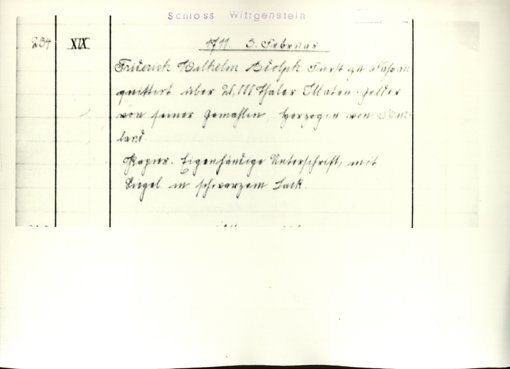 Schloss Wittgenstein
234 XIX 1711. 3. Februar
Friedrich Wilhelm Adolph Fürst zu Nassau
quittiert über Thaler Gelder
von seiner Gemahlin, Herzogin von
land.
Papier. Eigenhändige Unterschrift, mit
Siegel in schwarzem Lack.